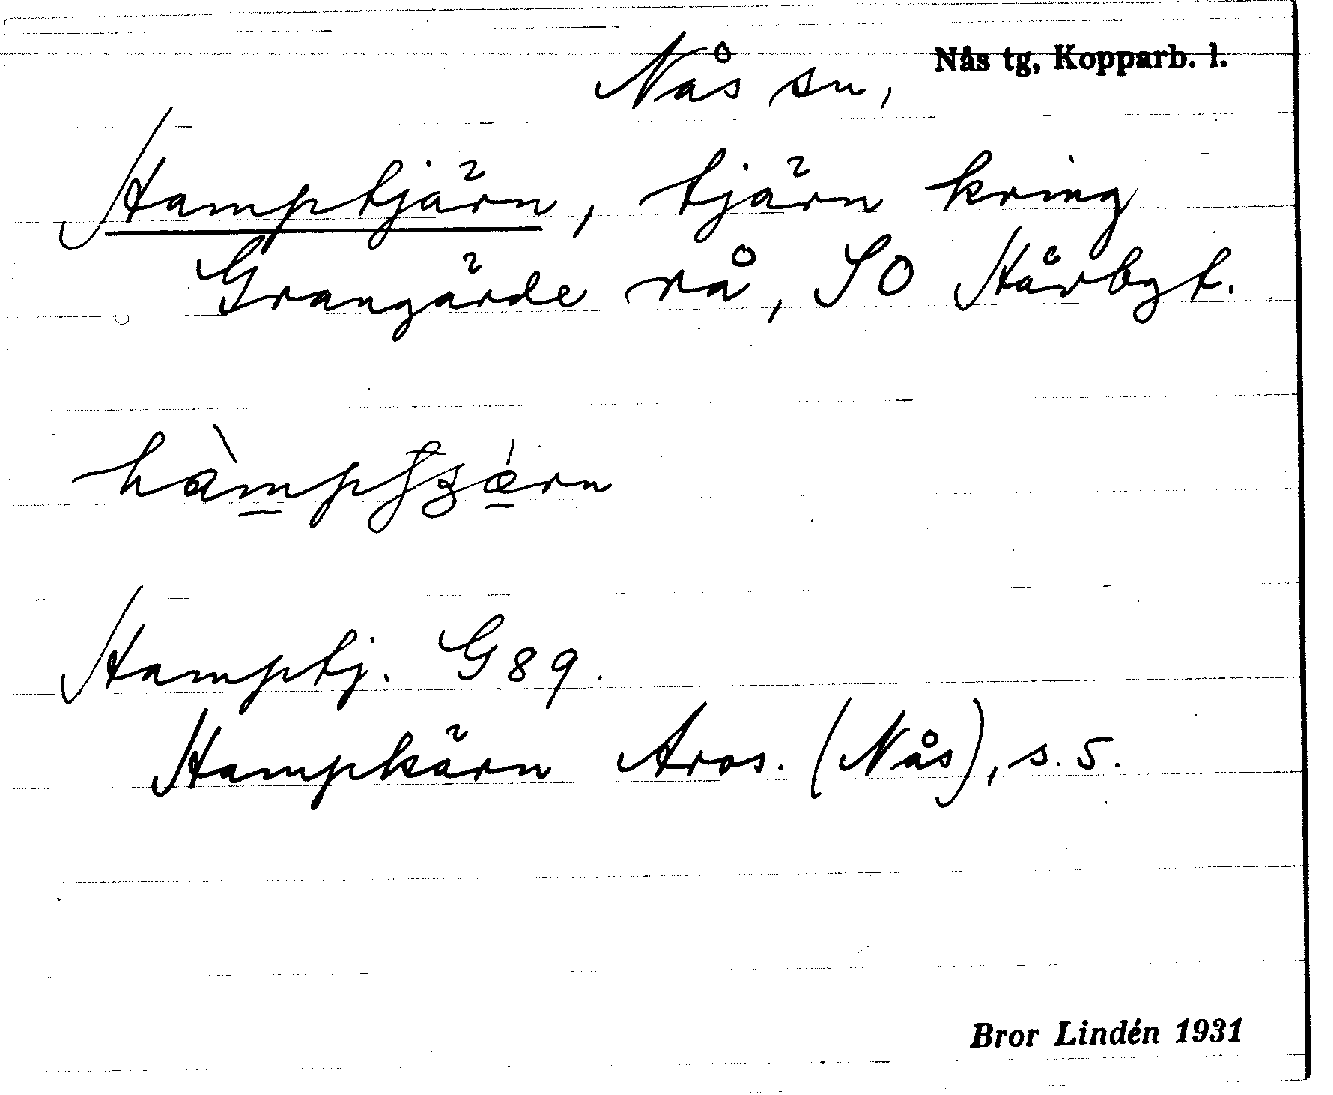 Nås sn, Nås tg, Kopparb. l.
Hamptjärn, tjärn kring
Grangärde rå, SO Hårbgt.
Hamptj. G89.
Hampkärn Aros. (Nås), s. 5.
Bror Lindén 1931